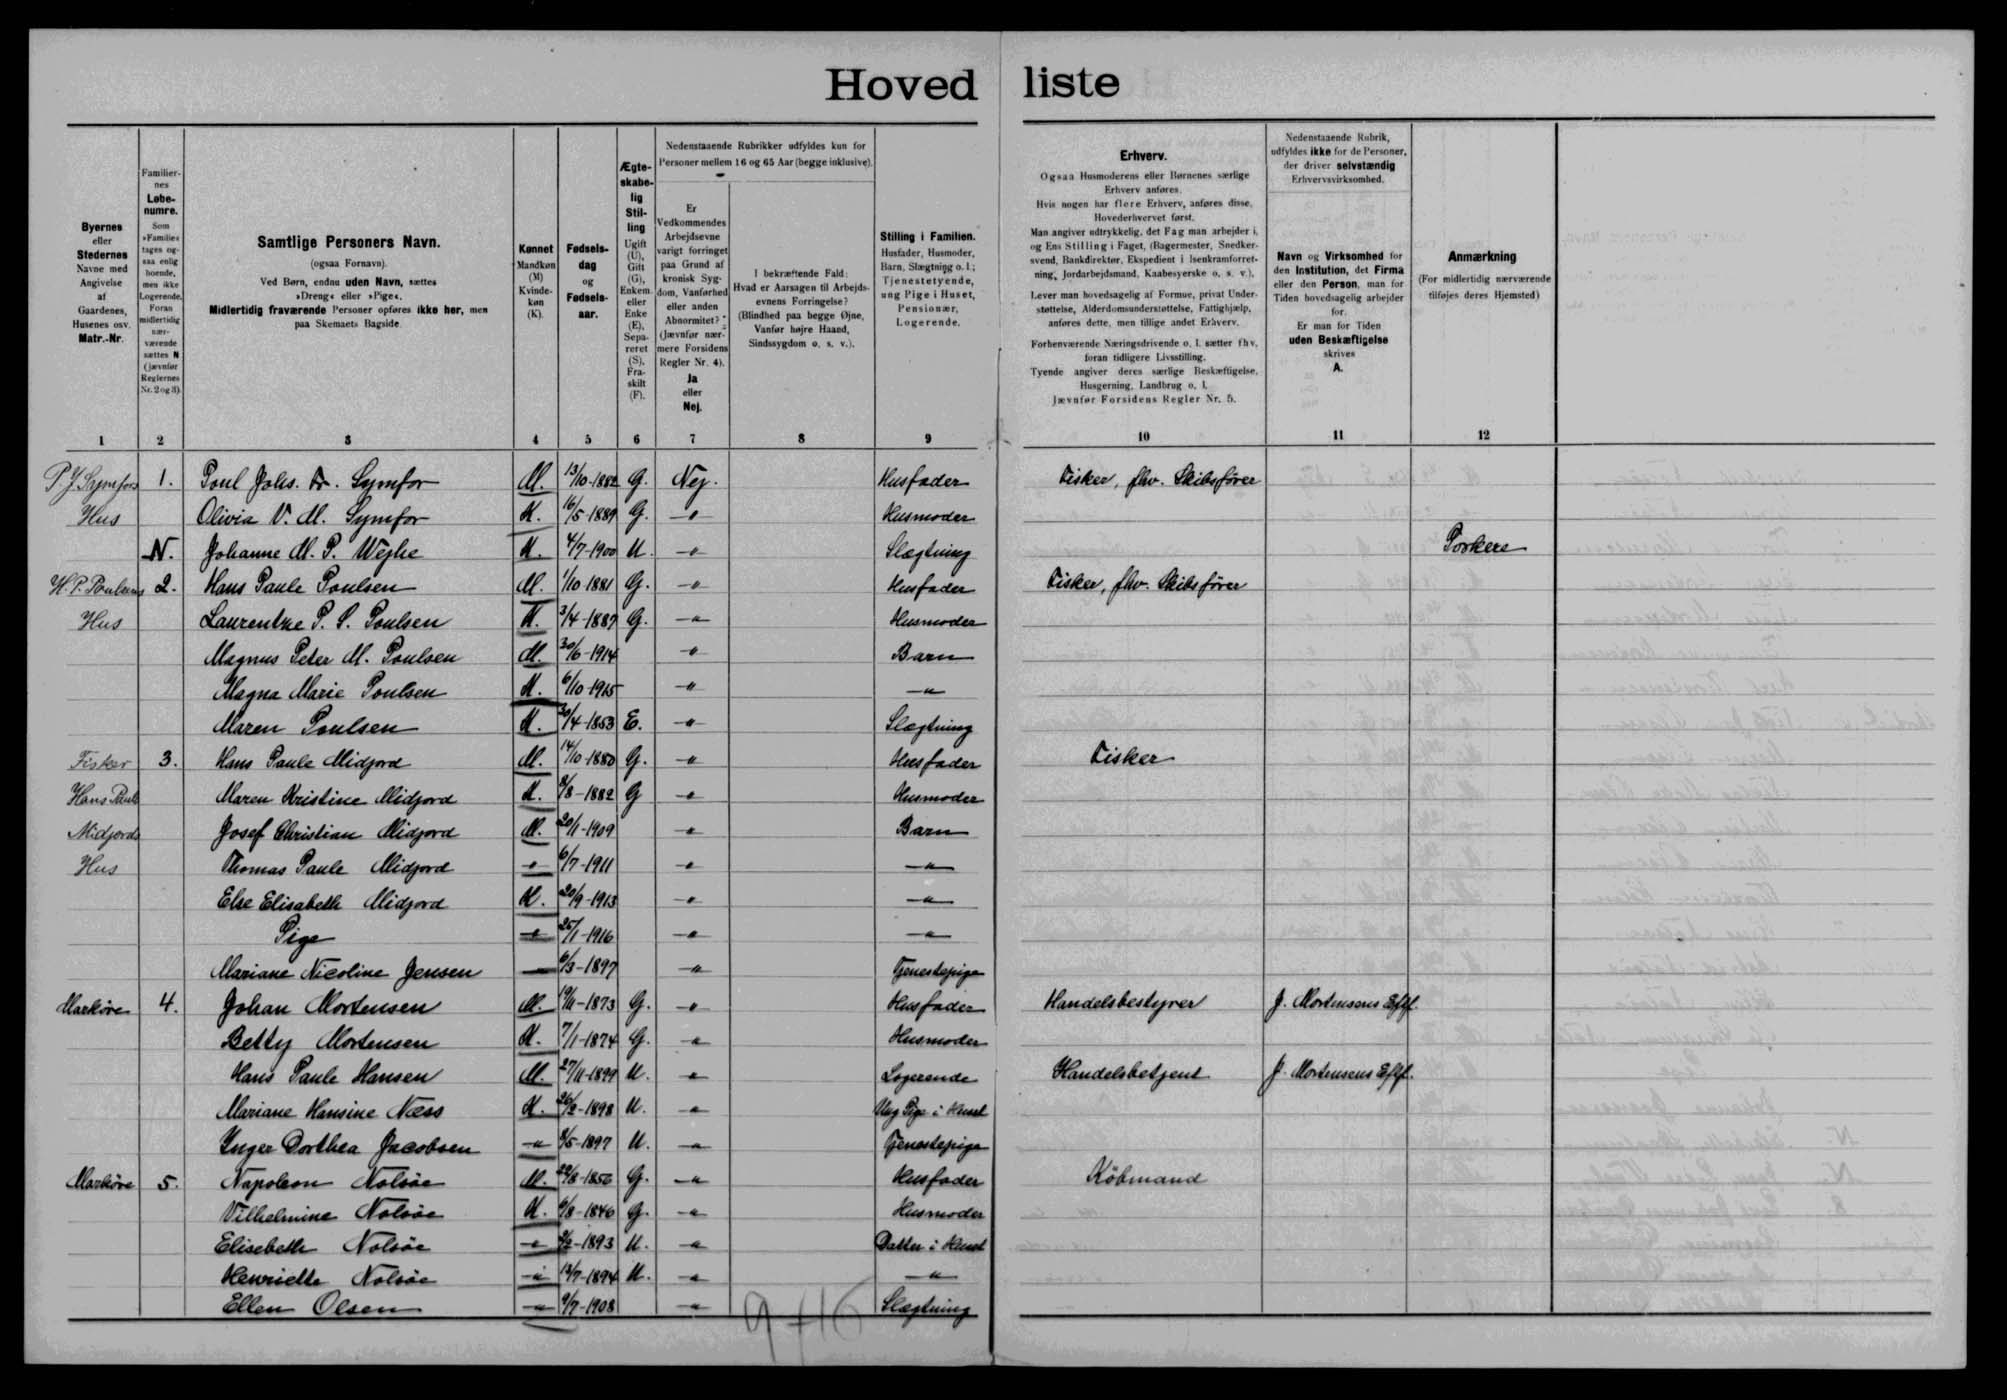 Hoved liste
Byernes
eller
Stedernes
Navne med
Angivelse
af
Gaardenes,
Husenes osv.
Matr.-Nr.
Familier-
nes
Løbe-
numre.
Som
»Familie«
tages og-
saa enlig
boende,
men ikke
Logerende.
Foran
midlertidig
nær-
værende
sættes N
(jævnfør
Reglernes
Nr. 2 og 3).
Samtlige Personers Navn.
(ogsaa Fornavn).
Ved Børn, endnu uden Navn, sættes
»Dreng« eller »Pige«.
Midlertidig fraværende Personer opføres ikke her, men
paa Skemaets Bagside.
Kønnet
Mandkøn
(M)
Kvinde-
køn
(K).
Fødsels-
dag
og
Fødsels-
aar.
Ægte-
skabe-
lig
Stil-
ling
Ugift
(U),
Gift
(G),
Enkem.
eller
Enke
(E),
Sepa-
reret
(S),
Fra-
skilt
(F).
Nedenstaaende Rubrikker udfyldes kun for
Personer mellem 16 og 65 Aar (begge inklusive).
Er
Vedkommendes
Arbejdsevne
varigt forringet
paa Grund af
kronisk Syg-
dom, Vanførhed
eller anden
Abnormitet?
(Jævnfør nær-
mere Forsidens
Regler Nr. 4).
Ja
eller
Nej.
I bekræftende Fald:
Hvad er Aarsagen til Arbejds-
evnens Forringelse?
(Blindhed paa begge Øjne,
Vanfør højre Haand,
Sindssygdom o. s. v.).
Stilling i Familien.
Husfader, Husmoder,
Barn, Slægtning o. l.;
Tjenestetyende,
ung Pige i Huset,
Pensionær,
Logerende.
Erhverv.
Ogsaa Husmoderens eller Børnenes særlige
Erhverv anføres.
Hvis nogen har flere Erhverv, anføres disse,
Hovederhvervet først.
Man angiver udtrykkelig, det Fag man arbejder i,
og Ens Stilling i Faget, (Bagermester, Snedker-
svend, Bankdirektør, Ekspedient i Isenkramforret-
ning, Jordarbejdsmand, Kaabesyerske o. s. v.).
Lever man hovedsagelig af Formue, privat Under-
støttelse, Alderdomsunderstøttelse, Fattighjælp,
anføres dette, men tillige andet Erhverv.
Forhenværende Næringsdrivende o. l. sætter fhv.
foran tidligere Livsstilling.
Tyende angiver deres særlige Beskæftigelse,
Husgerning, Landbrug o. l.
Jævnfør Forsidens Regler Nr. 5.
Nedenstaaende Rubrik,
udfyldes ikke for de Personer,
der driver selvstændig
Erhvervsvirksomhed.
Navn og Virksomhed for
den Institution, det Firma
eller den Person, man for
Tiden hovedsagelig arbejder
for.
Er man for Tiden
uden Beskæftigelse
skrives
A.
Anmærkning
(For midlertidig nærværende
tilføjes deres Hjemsted)
1 2 3 4 5 6 7 8 9 10 11 12
P. J. Symfors 1. Poul Johs. Fr. Symfor M. 13/10-1882 G. Nej. Husfader Fisker, fhv. Skibsfører
Hus Olivia V. M. Symfor K. 16/5-1889 G. -"- Husmoder
N. Johanne M. P. Wejhe K. 4/7-1900 U. -"- Slægtning Porkere
H. P. Poulsens 2. Hans Paule Poulsen M. 1/10 1881 G. -"- Husfader Fisker, fhv. Skibsfører
Hus Laurentze P. S. Poulsen K. 3/4-1887 G. -"- Husmoder
Magnus Peter M. Poulsen M. 30/6-1914 -"- Barn
Magna Marie Poulsen K. 6/10-1915 -"- -"-
Maren Poulsen K. 30/4-1853 E. -"- Slægtning
Fisker 3. Hans Paule Midjord M. 14/10-1880 G. -"- Husfader Fisker
Hans Pauli Maren Kristine Midjord K. 8/8-1882 G -"- Husmoder
Midjords Josef Christian Midjord M. 20/1-1909 -"- Barn
Hus Thomas Paule Midjord -"- 6/7-1911 -"- -"-
Else Elisabeth Midjord K. 20/9-1913 -"- -"-
Pige -"- 25/1-1916 -"- -"-
Mariane Nicoline Jensen -"- 6/3-1897 -"- Tjenestepige
Markøre 4. Johan Mortensen M. 19/11-1873 G. -"- Husfader Handelsbestyrer J. Mortensens Eftf.
Betty Mortensen K. 7/1-1874 G. -"- Husmoder
Hans Paule Hansen M. 27/11-1899 U. -"- Logerende Handelsbetjent J. Mortensens Eftf.
Mariane Hansine Næss K. 26/2-1898 U. -"- Ung Pige i Huset
Inger Dorthea Jacobsen -"- 8/5-1897 U. -"- Tjenestepige
Markøre 5. Napoleon Nolsøe M. 29/8-1856 G. -"- Husfader Købmand
Vilhelmine Nolsøe K. 6/8-1846 G. -"- Husmoder
Elisebeth Nolsøe -"- 2/2-1893 U. -"- Datter i Huset
Henriette Nolsøe -"- 13/7-1894 U. -"- -"-
Ellen Olsen -"- 9/7-1908 -"- Slægtning
9+16